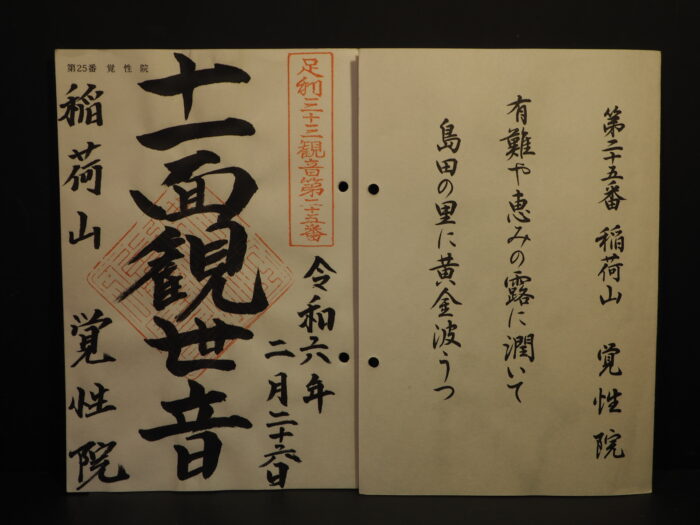 第二十五番 稲荷山 覚性院
有難や恵みの露に潤いて
島田の里に黄金波うつ
足利三十三観音第二十五番
令和六年
二月二十六日
十一面観世音
第25番 覚性院
稲荷山 覚性院